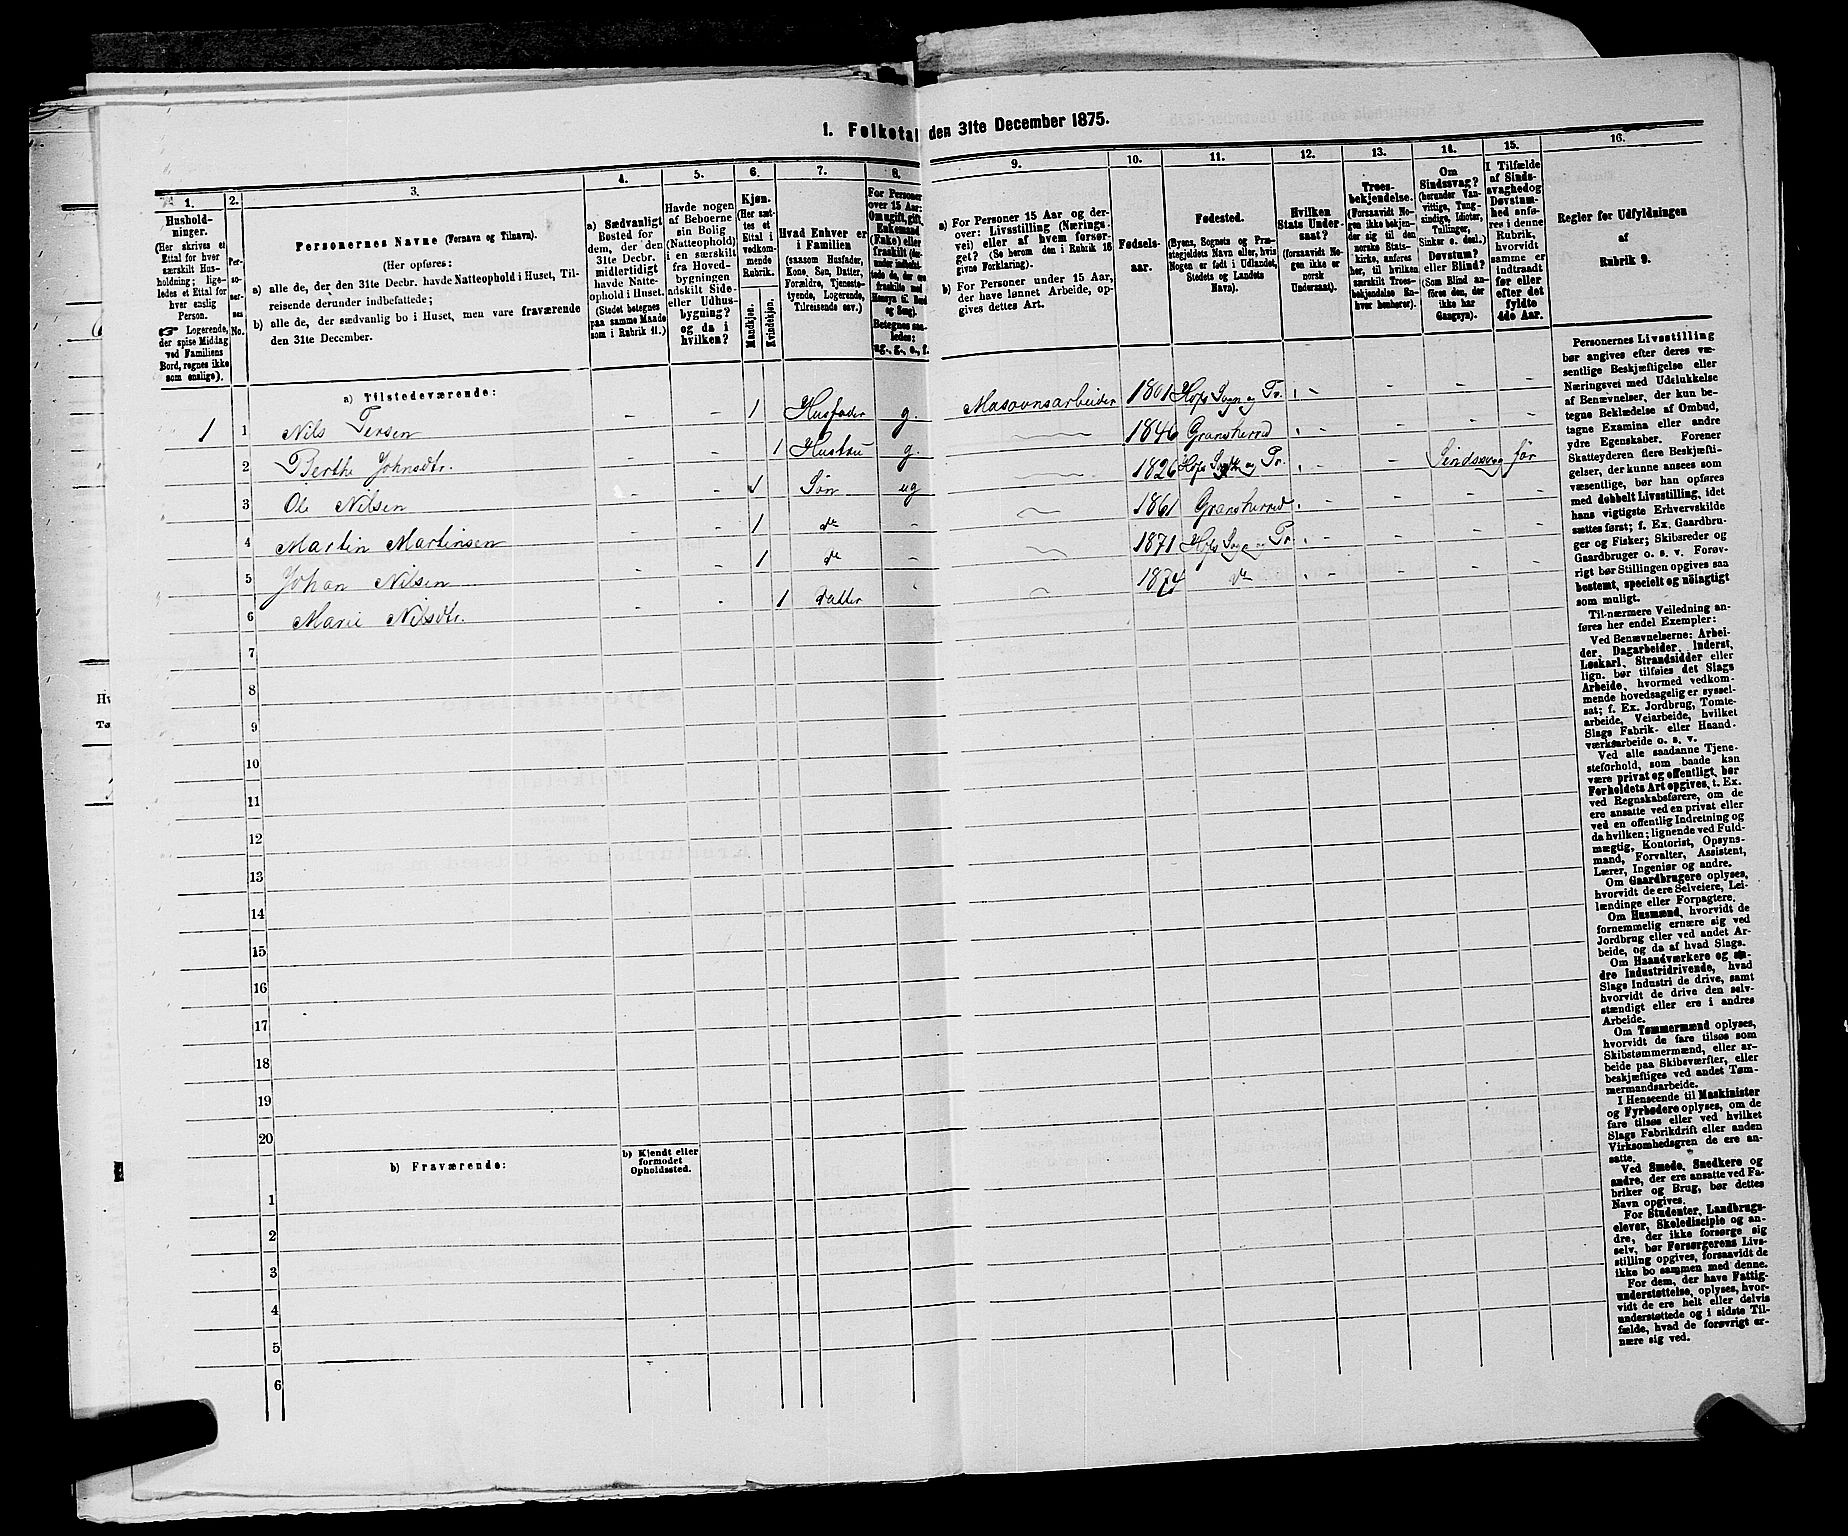 1. Folketal den 31te December 1875.
1.
Hushold-
ninger.
(Her skrives et
Ettal for hver
særskilt Hus-
holdning; lige-
ledes et Ettal for
hver enslig
Person.
Logerende,
der spise Middag
ved Familiens
Bord, regnes ikke
som enslige).
2.
Per-
so-
ner-
nes
No.
3.
Personernes Navne (Fornavn og Tilnavn).
(Her opføres:
a) alle de, der den 31te Decbr. havde Natteophold i Huset, Til-
reisende derunder indbefattede;
b) alle de, der sædvanlig bo i Huset, men vare fraværende
den 31te December.
4.
a) Sædvanligt
Bosted for
dem, der den
31te Decbr.
midlertidigt
havde Natte-
ophold i Huset.
(Stedet betegnes
paa samme Maade
som i Rubrik 11.)
5.
Havde nogen
af Beboerne
sin Bolig
(Natteophold)
i en særskilt
fra Hoved-
bygningen
adskilt Side-
eller Udhus-
bygning?
og da i
hvilken?
6.
Kjøn.
(Her sæt-
tes et
Ettal i
vedkom-
mende
Rubrik.
Mandkjøn.
Kvindekjøn.
7.
Hvad Enhver er
i Familien
(saasom Husfader,
Kone, Søn, Datter,
Forældre, Tjeneste-
tyende, Logerende,
Tilreisende osv.)
8.
For Personer
over 15 Aar:
Om ugift, gift
Enkemand
(Enke) eller
fraskilt
Betegnes saa-
ledes:
ug., g., e., f.
9.
a) For Personer 15 Aar og der-
over: Livsstilling (Nærings-
vei) eller af hvem forsør-
get? (Se herom den i Rubrik 16
givne Forklaring).
b) For Personer under 15 Aar,
der have lønnet Arbeide, op-
gives dettes Art.
10.
Fødsels-
aar.
11.
Fødested.
(Byens, Sognets og Præ-
stegjeldets Navn eller, hvis
Nogen er født i Udlandet,
Stedets og Landets
Navn).
12.
Hvilken
Stats Under-
saat?
(forsaavidt No-
gen ikke er
norsk
Undersaat).
13.
Troes-
bekjendelse.
(Forsaavidt No-
gen ikke bekjen-
der sig til den
norske Stats-
kirke, anføres
her, til hvilken
særskilt Troes-
bekjendelse En-
hver henhører).
14.
Om
Sindssvag?
(herunder Van-
vittige, Tung-
sindige, Idioter,
Tullinger,
Sinker o. desl.)
Døvstum?
eller Blind?
(Som Blind an-
føres den, der
ikke har
Gangsyn).
15.
I Tilfælde
af Sinds-
svaghed og
Døvstum-
hed anfø-
res i denne
Rubrik,
hvorvidt
samme er
indtraadt
før eller
efter det
fyldte
4de Aar.
16.
Regler for Udfyldningen
af
Rubrik 9.
a) Tilstedeværende:
1 1 Nils Tersen - - 1 Husfader g. Masovnsarbeider 1801 Hofs Sogn og Pr. - - - -
2 Berthe Johnsdtr. - - 1 Hustru g. 1846 Gransherred - - - -
3 Ole Nilsen - - 1 Søn ug 1826 Hofs Sogn og Pr. - - Sindssvag før
4 Martin Martinsen - - 1 do - 1861 Gransherred - - - -
5 Johan Nilsen - - 1 do - 1871 Hofs Sogn og Pr. - - - -
6 Marie Nilsdtr. - - 1 datter - 1874 do - - - -
7
8
9
10
11
12
13
14
15
16
17
18
19
20
b) Fraværende:
b) Kjendt eller
formodet
Opholdssted.
1
2
3
4
5
6
Personernes Livsstilling
bør angives efter deres væ-
sentlige Beskjæftigelse eller
Næringsvei med Udslukkelse
af Benævnelser, der kun be-
tegne Beklædelse af Ombud,
tagne Examina eller andre
ydre Egenskaber. Forener
Skatteyderen flere Beskjæfti-
gelser, der kunne ansees som
væsentlige, bør han opføres
med dobbelt Livsstilling, idet
hans vigtigste Erhvervskilde
sættes først; f. Ex. Gaardbru-
ger og Fisker; Skibsreder og
Gaardbruger o. s. v. Forøv-
rigt bør Stillingen opgives saa
bestemt, specielt og nöiagtigt
som muligt.
Til nærmere Veiledning an-
føres her endel Exempler:
Ved Benævnelserne: Arbei-
der, Dagarbeider, Inderst,
Løskarl, Strandsidder eller
lign. bør tilføies det Slags
Arbeide, hvormed vedkom-
mende hovedsagelig er syssel-
sat; f. Ex. Jordbrug, Tomte-
arbeide, Veiarbeide, hvilket
Slags Fabrik- eller Haand-
værksarbeide o. s. v.
Ved alle saadanne Tjene-
steforhold, som baade kan
være privat og offentligt, bør
Forholdets Art opgives, t. Ex.
ved Regnskabsførere, om de
ere ansatte ved en privat eller
ved en offentlig Indretning og
da hvilken; lignende ved Fuld-
mægtig, Kontorist, Opsyns-
mand, Forvalter, Assistent,
Lærer, Ingeniør og andre.
Om Gaardbrugere oplyses,
hvorvidt de ere Selveiere, Lei-
lændinge eller Forpagtere.
Om Husmænd, hvorvidt de
fornemmelig ernære sig ved
Jordbrug eller ved andet Ar-
beide, og da af hvad Slags.
Om Haandværkere og an-
dre Industridrivende, hvad
Slags Industri de drive, samt
hvorvidt de drive den selv-
stændigt eller ere i andres
Arbeide.
Om Tømmermænd oplyses,
hvorvidt de fare tilsøs som
Skibstømmermænd, eller ar-
beide paa Skibsværfter, eller
beskjæftiges ved andet Tøm-
mermandsarbeide.
I Henseende til Maskinister
og Fyrbødere oplyses, om de
fare tilsøs eller ved hvilket
Slags Fabrikdrift eller anden
Virksomhedsgren de ere an-
satte.
Ved Smede, Snedkere og
andre, der ere ansatte ved Fa-
briker og Brug, bør dettes
Navn opgives.
For Studenter, Landbrugs-
elever, Skoledisciple og an-
dre, der ikke forsørge sig
selv, bør Forsørgerens Livs-
stilling opgives, forsaavidt de
ikke bo sammen med denne.
For dem, der have Fattig-
understøttelse, oplyses, hvor-
vidt de ere helt eller delvis
understøttede og i sidste Til-
fælde, hvad de forøvrigt er-
nære sig ved.